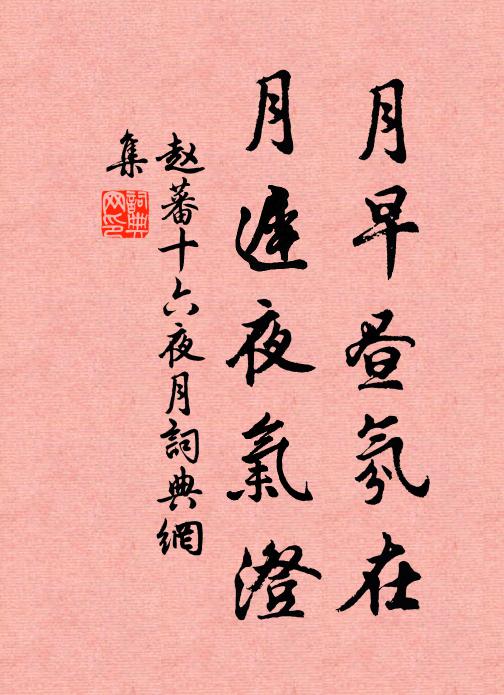 月早昼氛在
月遲夜氣澄
赵蕃十六夜月詞典網
集
詞典
网印